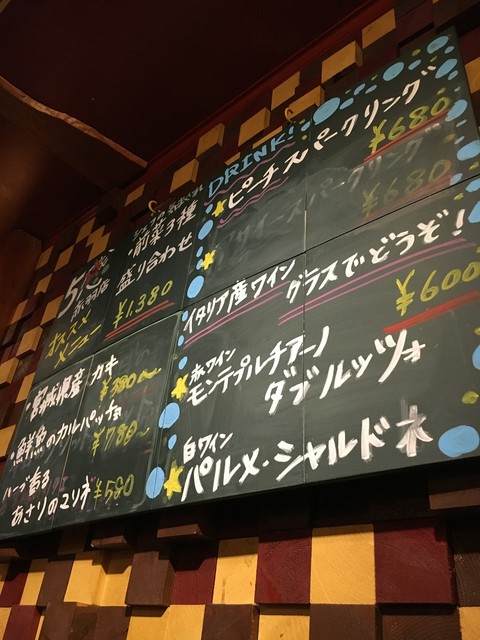 赤羽店
オススメ
メニュー
シェフの気まぐれ
前菜3種
盛り合わせ
¥1,380
・宮城県産カキ
¥380〜
・鮮魚のカルパッチョ
¥780〜
ハーブ香る
あさりのマリネ
¥580
DRINK!
ピーチスパークリング
¥680
スパークリング
¥680
イタリア産ワイン
グラスでどうぞ!
¥600
赤ワイン
モンテプルチアーノ
ダブルッツォ
白ワイン
パルメ・シャルドネ